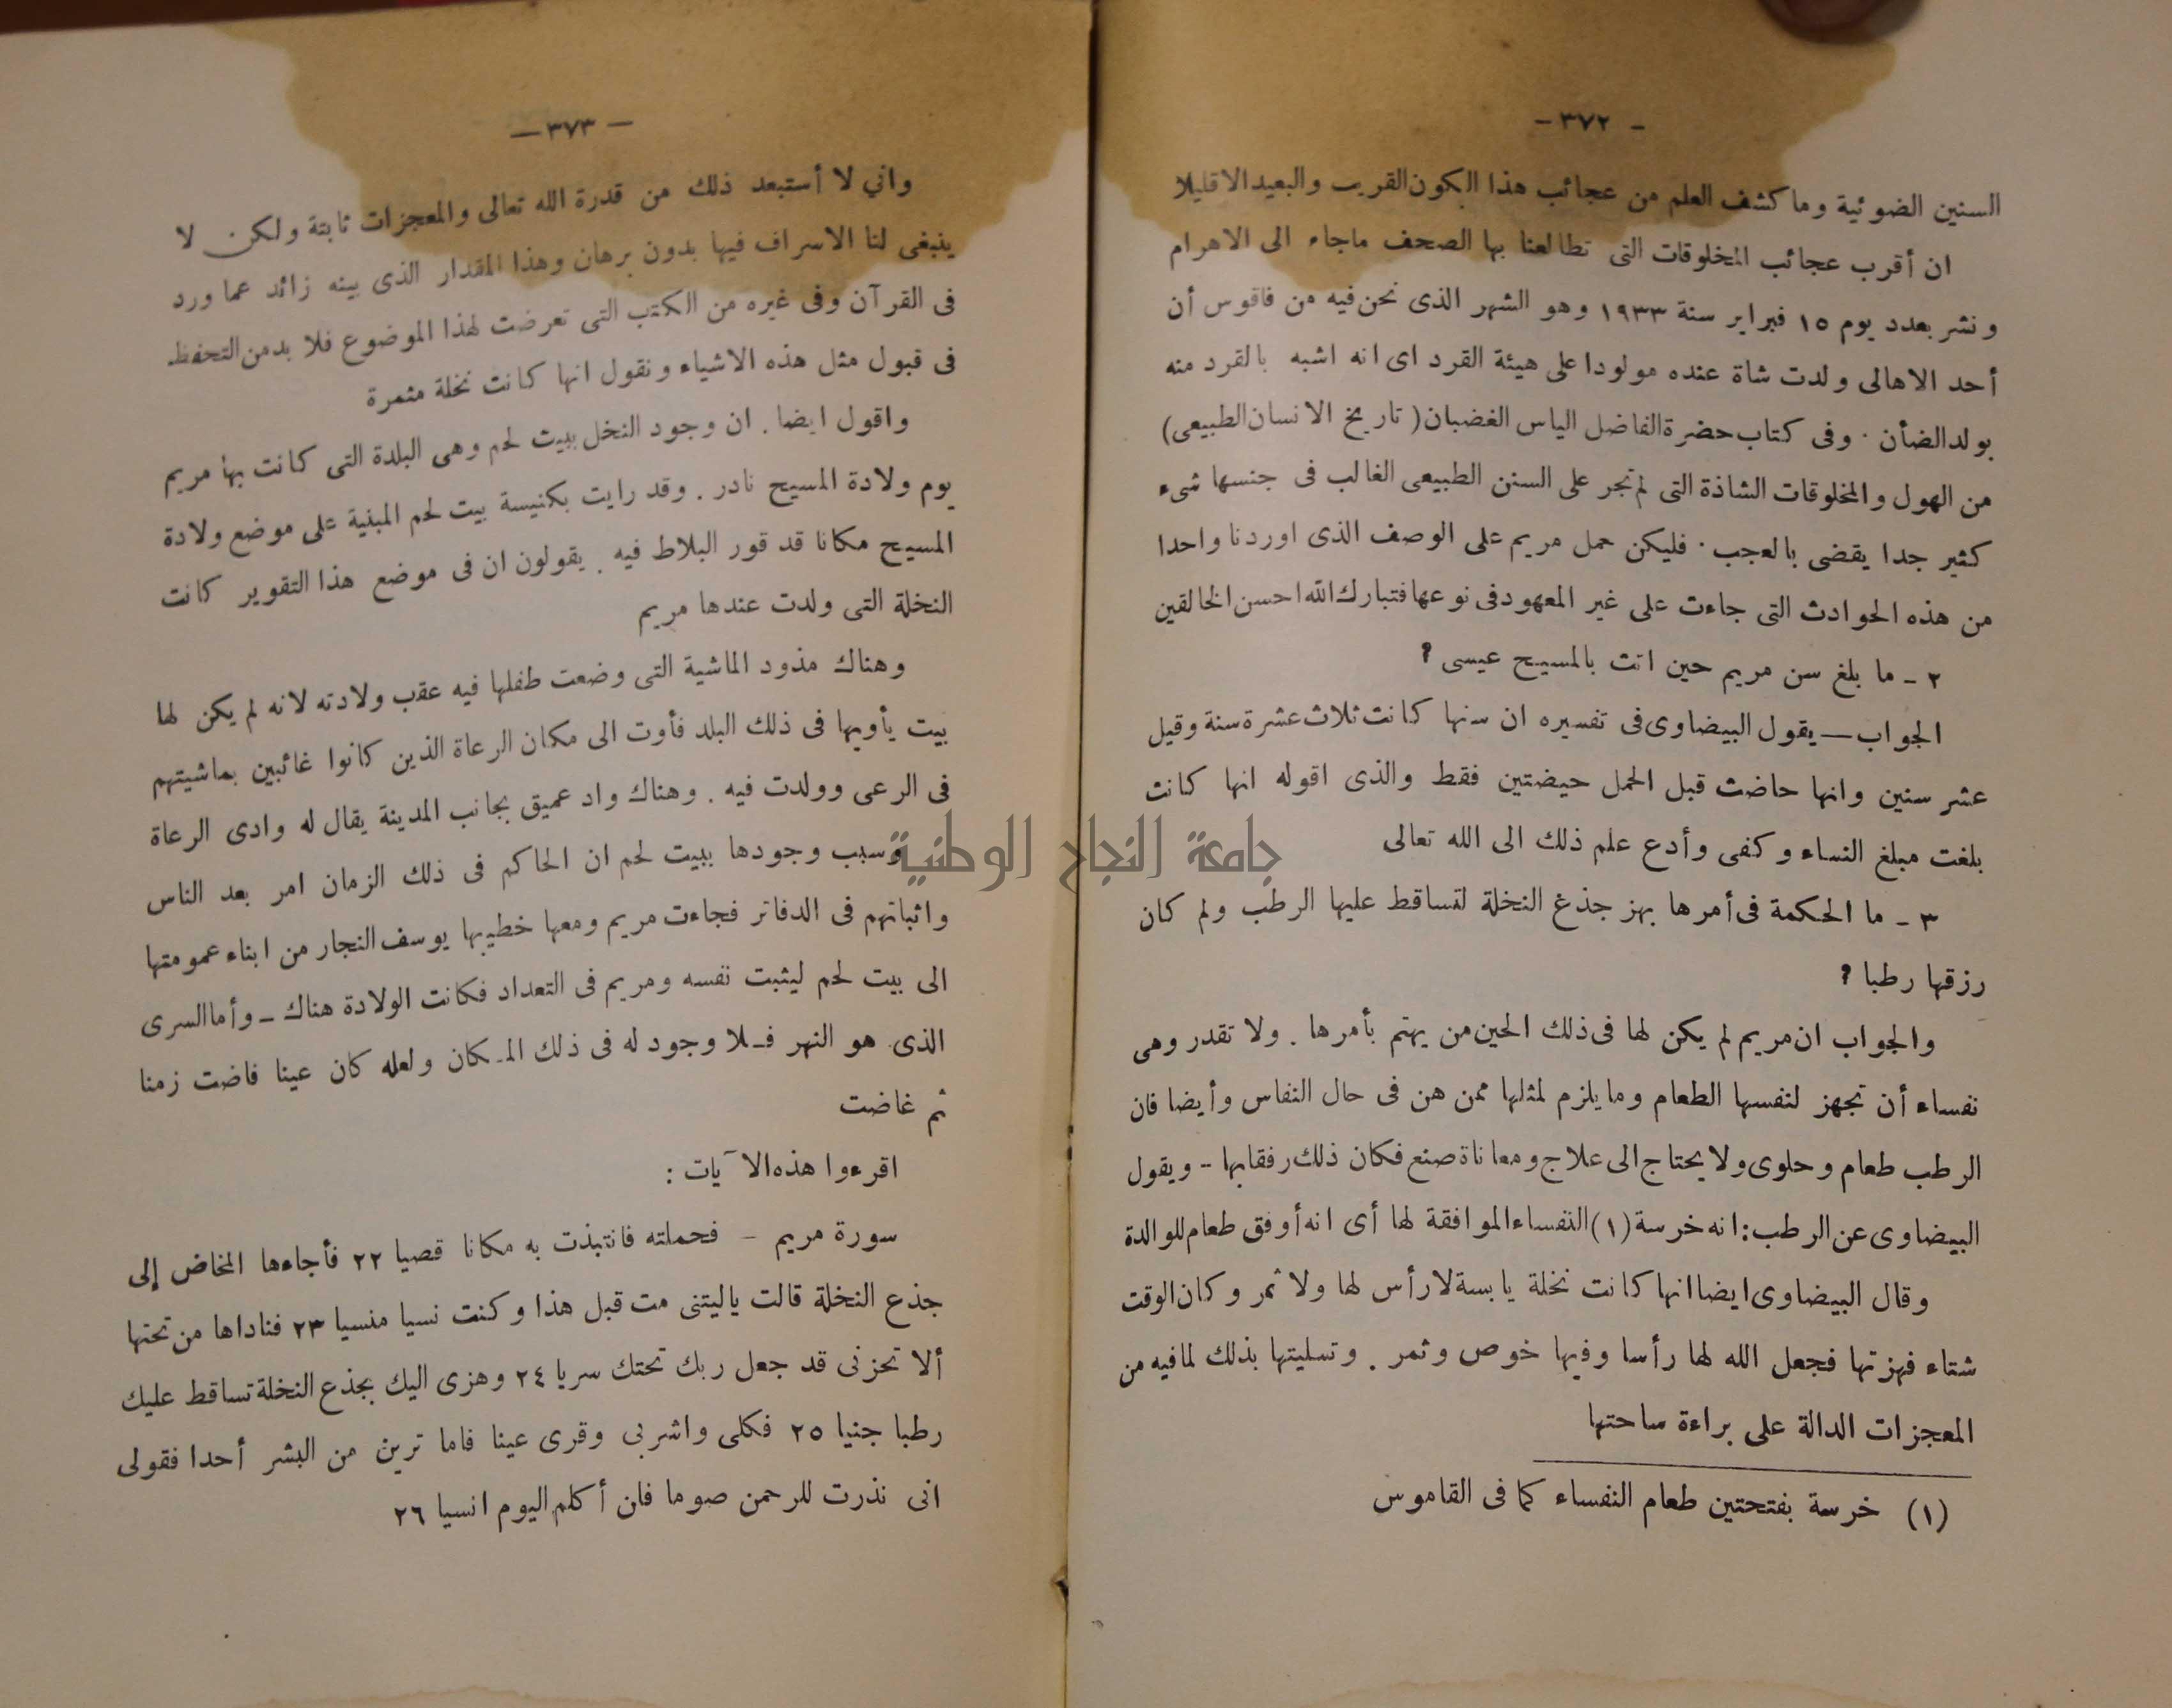 - ٣٧٢ -
السنين الضوئية وما كشف العلم من عجائب هذا الكون القريب والبعيد الا قليلا
ان أقرب عجائب المخلوقات التى تطالعنا بها الصحف ماجاء الى الاهرام
ونشر بعدد يوم ١٥ فبراير سنة ١٩٣٣ وهو الشهر الذى نحن فيه من فاقوس أن
أحد الاهالى ولدت شاة عنده مولودا على هيئة القرد اى انه اشبه بالقرد منه
بولد الضأن . وفى كتاب حضرة الفاضل الياس الغضبان ( تاريخ الانسان الطبيعى )
من الهول والمخلوقات الشاذة التى لم تجر على السنن الطبيعى الغالب فى جنسها شىء
كثير جدا يقضى بالعجب . فليكن حمل مريم على الوصف الذى اوردنا واحدا
من هذه الحوادث التى جاءت على غير المعهود فى نوعها فتبارك الله احسن الخالقين
٢ - ما بلغ سن مريم حين اتت بالمسيح عيسى ؟
الجواب — يقول البيضاوى فى تفسيره ان سنها كانت ثلاث عشرة سنة وقيل
عشر سنين وانها حاضت قبل الحمل حيضتين فقط والذى اقوله انها كانت
بلغت مبلغ النساء وكفى وأدع علم ذلك الى الله تعالى
٣ - ما الحكمة فى أمرها بهز جذع النخلة لتساقط عليها الرطب ولم كان
رزقها رطبا ؟
والجواب ان مريم لم يكن لها فى ذلك الحين من يهتم بأمرها . ولا تقدر وهى
نفساء أن تجهز لنفسها الطعام وما يلزم لمثلها ممن هن فى حال النفاس وأيضا فان
الرطب طعام وحلوى ولا يحتاج الى علاج ومعاناة صنع فكان ذلك رفقا بها - ويقول
البيضاوى عن الرطب : انه خرسة (١) النفساء الموافقة لها أى انه أوفق طعام للوالدة
وقال البيضاوى ايضا انها كانت نخلة يابسة لا رأس لها ولا ثمر وكان الوقت
شتاء فهزتها فجعل الله لها رأسا وفيها خوص وثمر . وتسليتها بذلك لما فيه من
المعجزات الدالة على براءة ساحتها
(١) خرسة بفتحتين طعام النفساء كما فى القاموس
— ٣٧٣ —
واني لا أستبعد ذلك من قدرة الله تعالى والمعجزات ثابتة ولكن لا
ينبغى لنا الاسراف فيها بدون برهان وهذا المقدار الذى بينه زائد عما ورد
فى القرآن وفى غيره من الكتب التى تعرضت لهذا الموضوع فلا بد من التحفظ
فى قبول مثل هذه الاشياء ونقول انها كانت نخلة مثمرة
واقول ايضا . ان وجود النخل ببيت لحم وهى البلدة التى كانت بها مريم
يوم ولادة المسيح نادر . وقد رايت بكنيسة بيت لحم المبنية على موضع ولادة
المسيح مكانا قد قور البلاط فيه . يقولون ان فى موضع هذا التقوير كانت
النخلة التى ولدت عندها مريم
وهناك مذود الماشية التى وضعت طفلها فيه عقب ولادته لانه لم يكن لها
بيت يأويها فى ذلك البلد فأوت الى مكان الرعاة الذين كانوا غائبين بماشيتهم
فى الرعى وولدت فيه . وهناك واد عميق بجانب المدينة يقال له وادى الرعاة
وسبب وجودها ببيت لحم ان الحاكم فى ذلك الزمان امر بعد الناس
واثباتهم فى الدفاتر فجاءت مريم ومعها خطيبها يوسف النجار من ابناء عمومتها
الى بيت لحم ليثبت نفسه ومريم فى التعداد فكانت الولادة هناك - وأما السرى
الذى هو النهر فلا وجود له فى ذلك المكان ولعله كان عينا فاضت زمنا
ثم غاضت
اقرءوا هذه الآيات :
سورة مريم - فحملته فانتبذت به مكانا قصيا ٢٢ فأجاءها المخاض إلى
جذع النخلة قالت ياليتنى مت قبل هذا وكنت نسيا منسيا ٢٣ فناداها من تحتها
ألا تحزنى قد جعل ربك تحتك سريا ٢٤ وهزى اليك بجذع النخلة تساقط عليك
رطبا جنيا ٢٥ فكلى واشربى وقرى عينا فاما ترين من البشر أحدا فقولى
انى نذرت للرحمن صوما فلن أكلم اليوم انسيا ٢٦
جامعة النجاح الوطنية